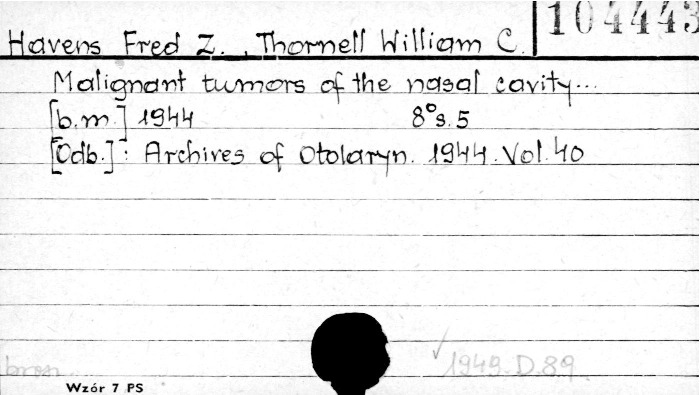 104443
Havens Fred Z., Thornell William C.
Malignant tumors of the nasal cavity...
[b.m.] 1944 8° s. 5
[Odb.]: Archives of Otolaryn. 1944. Vol. 40
1949. D. 89.
bros.
Wzór 7 PS